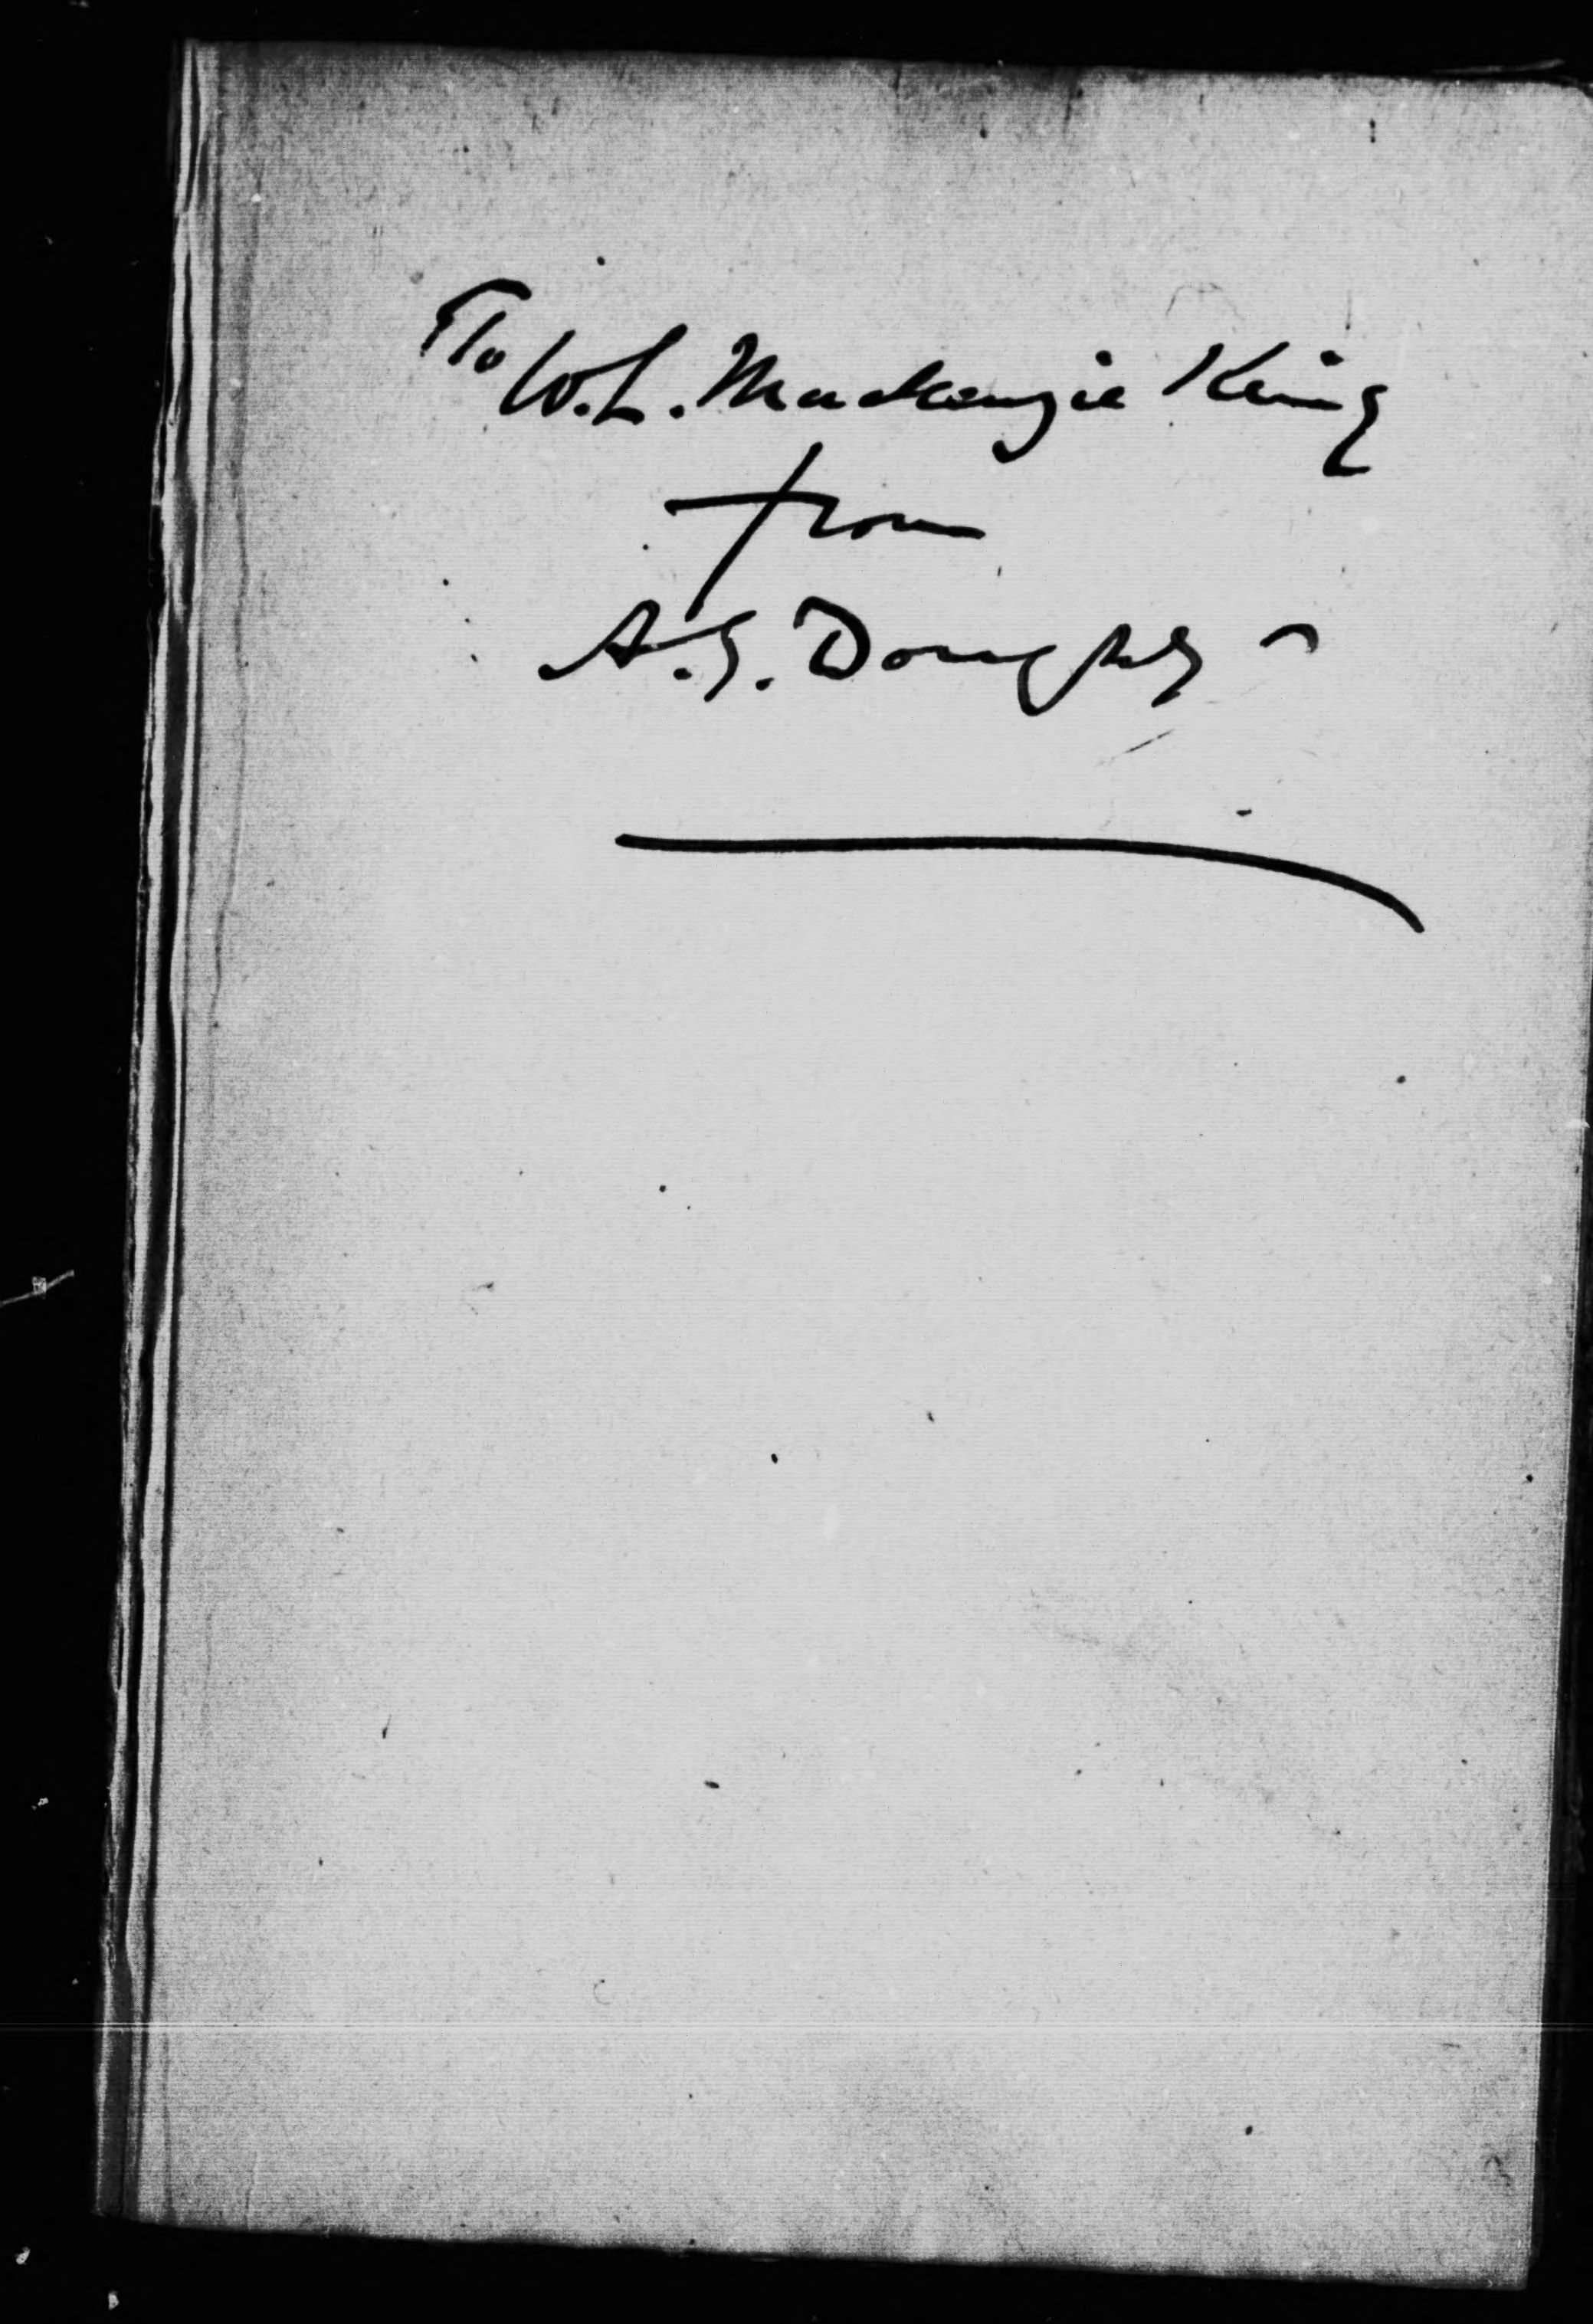 To W.L. Mackenzie King
from
A.G. Doughty